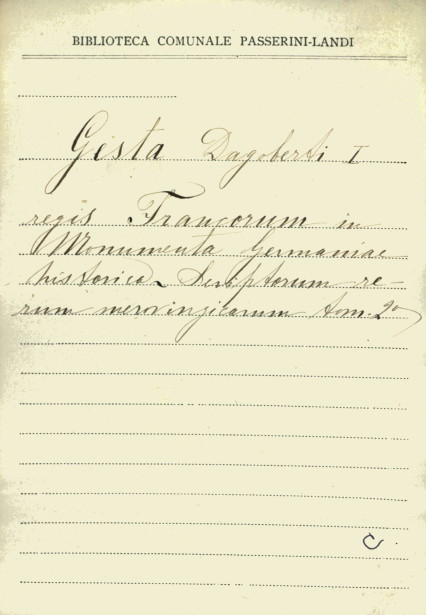 BIBLIOTECA COMUNALE PASSERINI-LANDI
Gesta Dagoberti I
regis Francorum in
Monumenta Germaniae
historica Scriptorum re-
rum merovingicarum tom. 2º
C